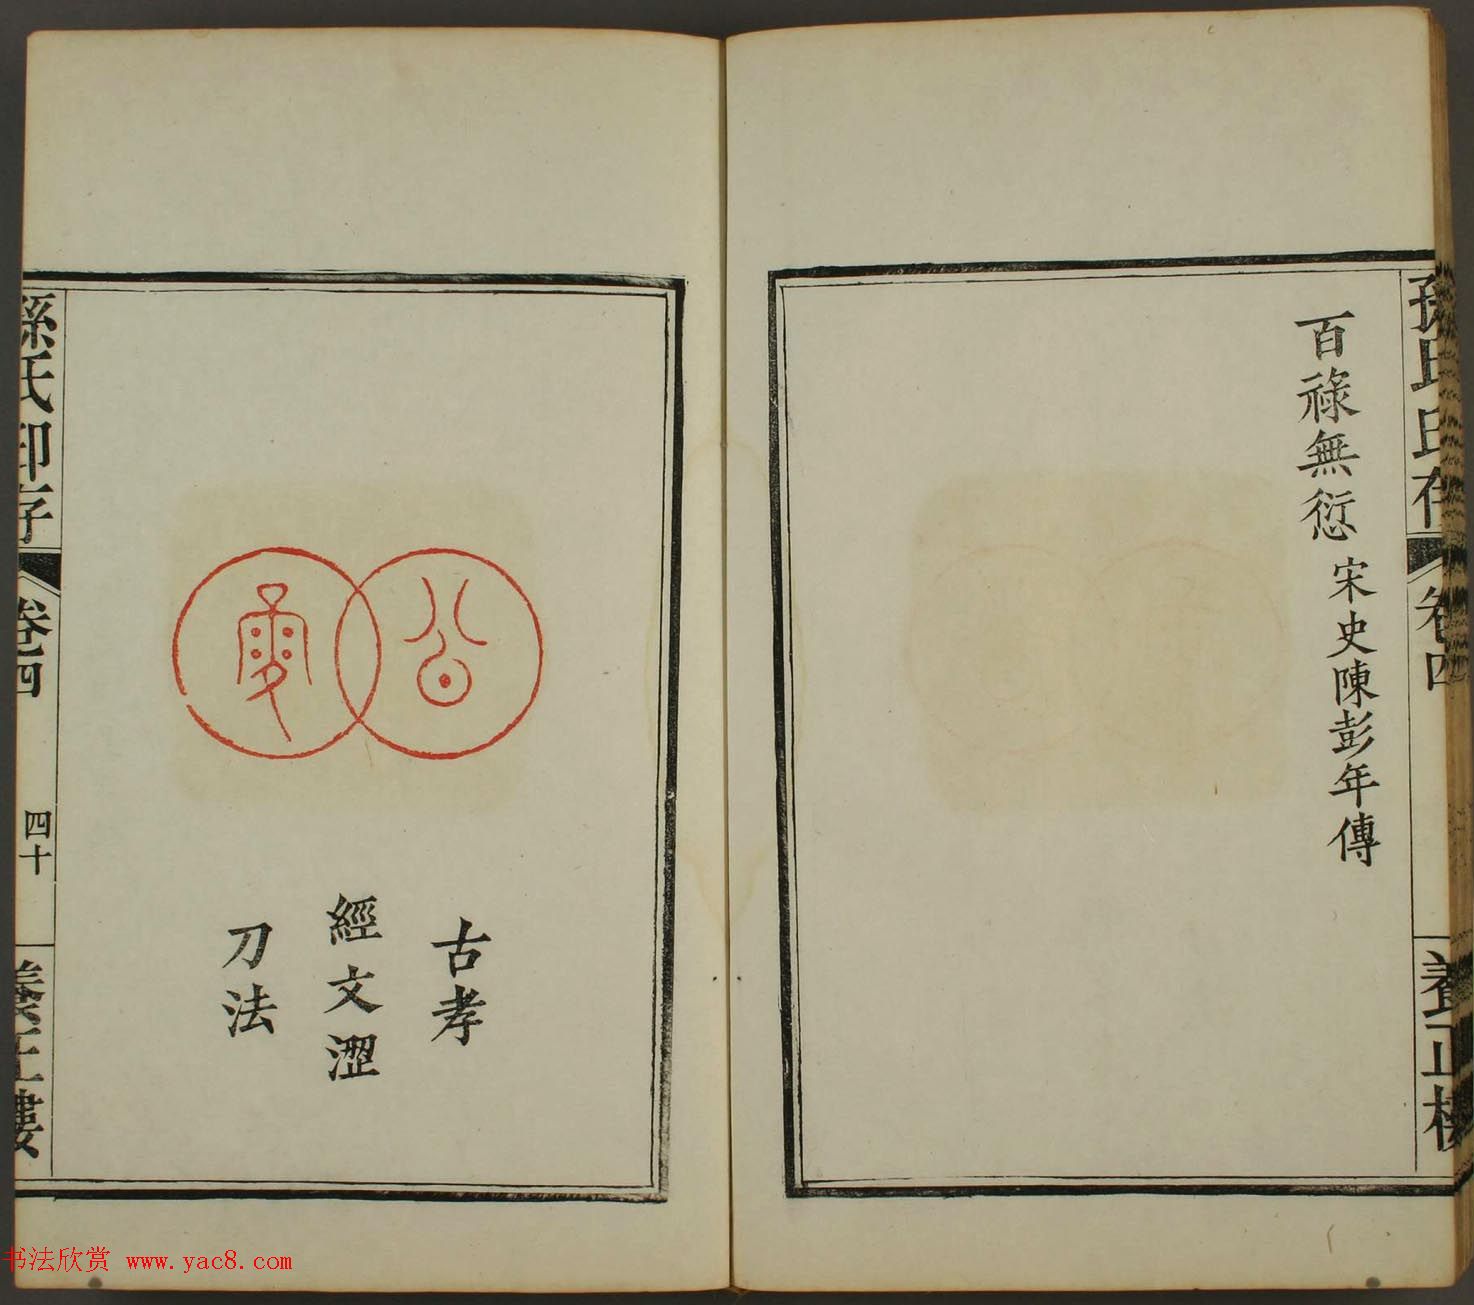 孫氏印存
卷四
養正樓
百祿無愆 宋史陳彭年傳
公
古孝
經文澀
刀法
孫氏印存
卷四
四十
養正樓
书法欣赏 www.yac8.com